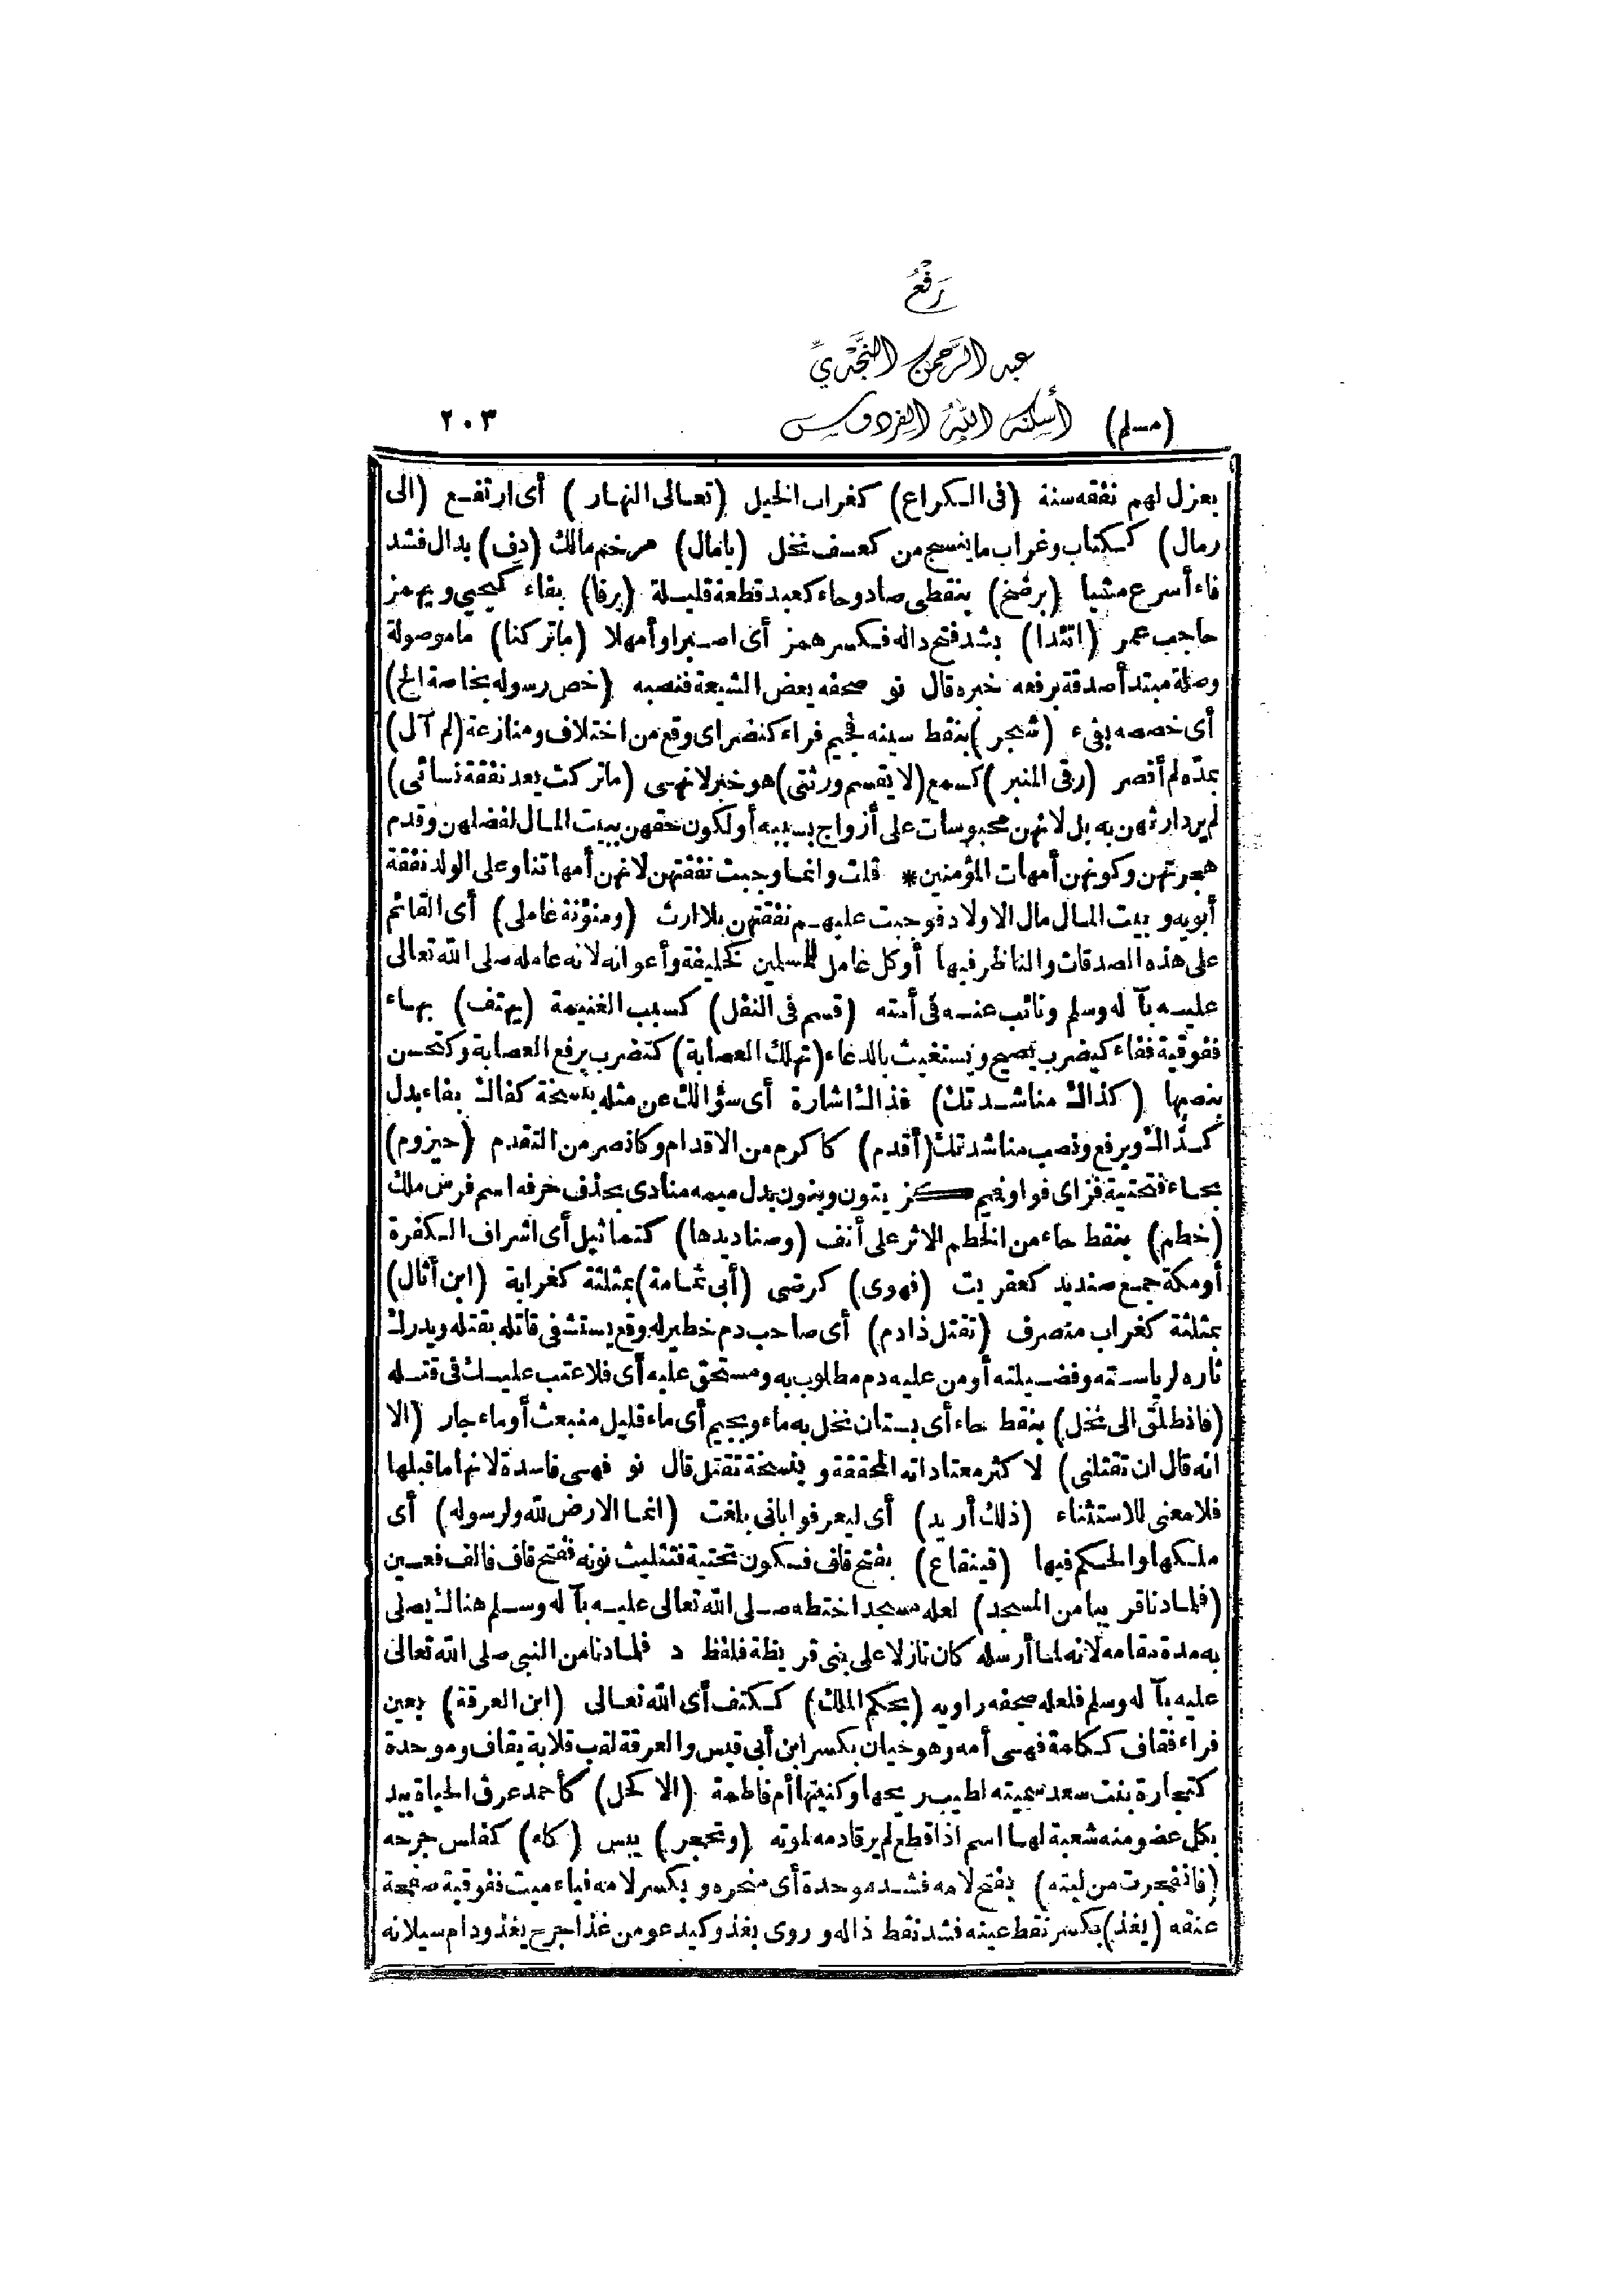 رَفْعُ
عبد الرَّحمن النَّجْدِيِّ
(مسلم) أسكنه اللهُ الفردوس ٢٠٣
يعزل لهم نفقه سنة (فى الكراع) كغراب الخيل (تعالى النهار) أى ارتفع (الى
رمال) ككتاب وغراب ما ينسج من كعسف نخل (يامال) مرخم مالك (دف) بدال فشد
فاء أسرع مشيا (برضخ) بنقطى صاد وحاء كعبد قطعة قليلة (يرفا) بفاء كيحيى ويهمز
حاجب عمر (اتئدا) بشد فتح داله فكسر همز أى اصبرا وأمهلا (ما تركنا) ما موصولة
وصلة مبتدأ صدقة برفعه خبره قال نو صحفه بعض الشيعة فنصبه (خص رسوله بخاصة الخ)
أى خصصه بفىء (شجر) بنقط سينه فجيم فراء كنصر اى وقع من اختلاف ومنازعة (لم آل)
بمدّه لم أقصر (رقى المنبر) كسمع (لا يقسم ورثتى) هو خبر لا نهى (ما تركت بعد نفقة نسائى)
لم يرد ارثهن به بل لانهن محبوسات على أزواج بسببه أو لكون حقهن ببيت المال لفضلهن وقدم
هجرتهن وكونهن أمهات المؤمنين * قلت وانما وجبت نفقتهن لانهن أمهاتنا وعلى الولد نفقة
أبويه وبيت المال مال الاولاد فوجبت عليهم نفقتهن بلا ارث (ومئونة عاملى) أى القائم
على هذه الصدقات والناظر فيها أو كل عامل للمسلمين كخليفة وأعوانه لانه عامله صلى الله تعالى
عليه بآله وسلم ونائب عنه فى أمته (قسم فى النفل) كسبب الغنيمة (يهتف) بهاء
ففوقية ففاء كيضرب يصيح ويستغيث بالدعاء (تهلك العصابة) كتضرب برفع العصابة وكتحسن
بنصبها (كذاك مناشدتك) فذاك اشارة أى سؤالك عن مثله بنسخة كفاك بفاء بدل
كذاك ويرفع ونصب مناشدتك (أقدم) كاكرم من الاقدام وكانصر من التقدم (حيزوم)
بحاء فتحتية فزاى فواو فميم كزيتون وبنون بدل ميمه منادى بحذف حرفه اسم فرس ملك
(خطم) بنقط حاء من الخطم الاثر على أنف (وصناديدها) كتماثيل أى اشراف الكفرة
أو مكة جمع صنديد كعفريت (فهوى) كرضى (أبى ثمامة) بمثلثة كغرابة (ابن أثال)
بمثلثة كغراب منصرف (تقتل ذا دم) أى صاحب دم خطير له وقع يستشفى قاتله بقتله ويدرك
ثاره لرياسته وفضيلته أو من عليه دم مطلوب به ومستحق عليه أى فلا عتب عليك فى قتله
(فانطلق الى نخل) بنقط حاء أى بستان نخل به ماء وبجيم أى ماء قليل منبعث أو ماء جار (الا
انه قال ان تقتلنى) لا كثر معتاداته المحققة وبنسخة تقتل قال نو فهى فاسدة لانها ما قبلها
فلا معنى للاستثناء (ذلك أريد) أى ليعرفوا بانى بلغت (انما الارض لله ولرسوله) أى
ملكها والحكم فيها (قينقاع) بفتح قاف فسكون تحتية فتثليث نونه ففتح قاف فالف فعين
(فلما دنا قريبا من المسجد) لعله مسجد اختطه صلى الله تعالى عليه بآله وسلم هنالك يصلى
به مدة مقامه لانه لما أرسله كان نازلا على بنى قريظة فلفظ د فلما دنا من النبى صلى الله تعالى
عليه بآله وسلم فلعله صحفه راويه (بحكم الملك) ككتف أى الله تعالى (ابن العرقة) بعين
فراء فقاف ككلمة فهى أمه وهو حيان بكسر ابن أبى قيس والعرقة لقب قلابة بقاف وموحدة
كتجارة بنت سعد سميته لطيب ريحها وكنيتها أم فاطمة (الاكحل) كأحمد عرق الحياة بيد
بكل عضو منه شعبة لها اسم اذا قطع لم يرقا دمه لموته (وتحجر) يبس (كله) كفلس جرحه
(فانفجرت من لبته) بفتح لامه فشد موحدة أى منحره وبكسر لامه فياء ميت ففوقية صفحة
عنقه (يغذ) بكسر نقط عينه فشد نقط ذاله وروى يغذو كيدعو من غذا جرح يغذو دام سيلانه